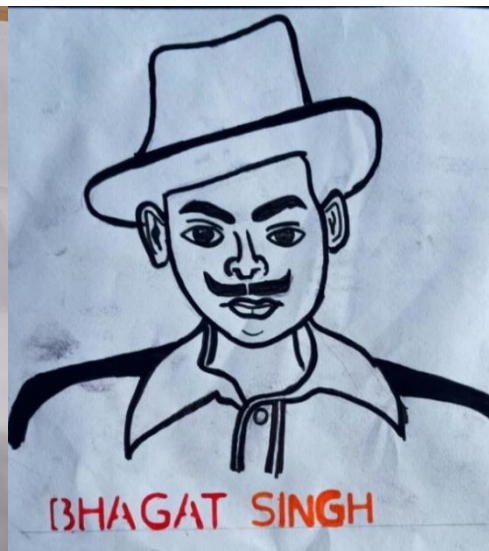 BHAGAT SINGH